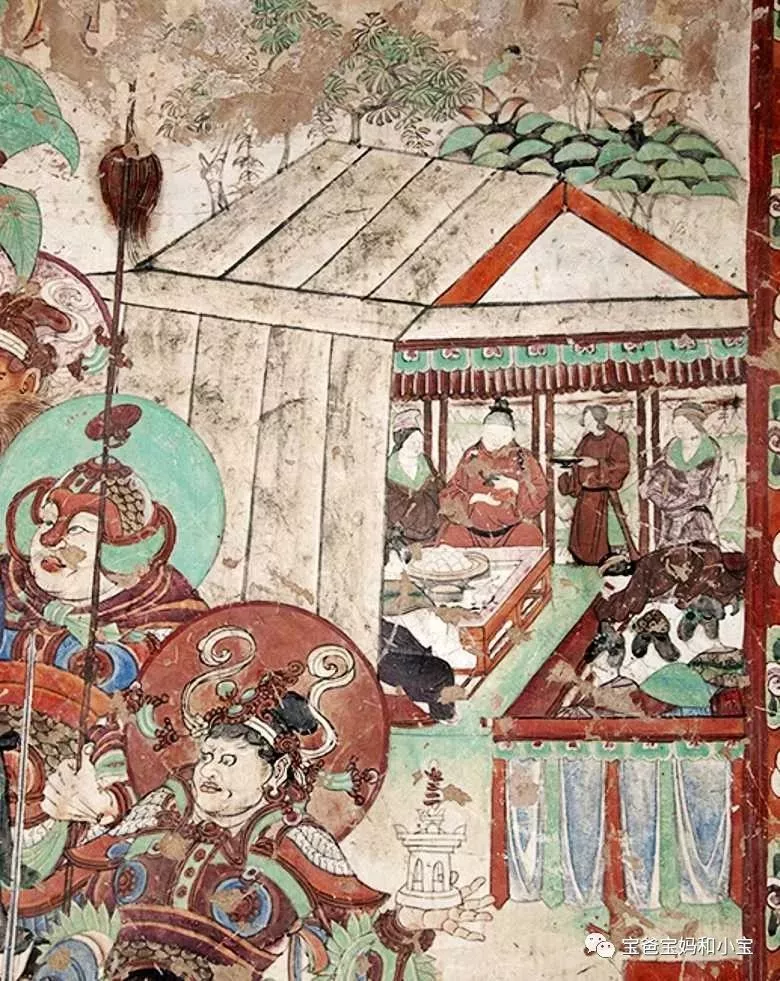 宝爸宝妈和小宝